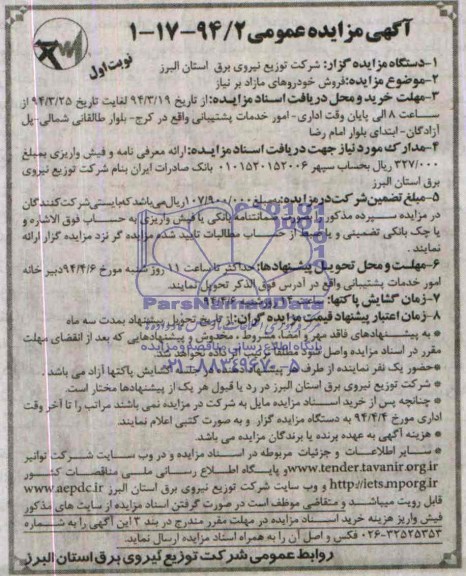 آگهی مزایده عمومی ۹۴/۲-۱۷-۱
نوبت اول
۱-دستگاه مزایده گزار: شرکت توزیع نیروی برق استان البرز
۲-موضوع مزایده:فروش خودروهای مازاد بر نیاز
۳-مهلت خرید و محل دریافت اسناد مزایـده:از تاریخ ۹۴/۳/۱۹ لغایت تاریخ ۹۴/۳/۲۵ از
ساعت ۸ الی پایان وقت اداری- امور خدمات پشتیبانی واقع در کرج- بلوار طالقانی شمالی-پل
آزادگان- ابتدای بلوار امام رضا
۴-مدارک مورد نیاز جهت دریافت اسناد مزایـده:ارائه معرفی نامه و فیش واریزی بمبلغ
۳۲۷/۰۰۰ ریال بحساب سپهر ۰۱۰۱۵۲۰۱۵۲۰۰۶ بانک صادرات ایران بنام شرکت توزیع نیروی
برق استان البرز
۵-مبلغ تضمین شرکت در مزایده: بمبلغ ۱۰۷/۹۰۰/۰۰۰ریال می‌باشد که‌بایستی‌شرکت‌کنندگان
در مزایده سپرده مذکور ضمانتنامه بانکی یا فیش واریزی به حساب فوق الاشاره و
یا چک بانکی تضمینی و یا از حساب مطالبات تایید شده مزایده گر نزد مزایده گزار ارائه
نمایند.
۶-مهلت و محل تحویل پیشنهادها: حداکثر تا ساعت ۱۱ روز شنبه مورخ ۹۴/۴/۶ دبیر خانه
امور خدمات پشتیبانی واقع در آدرس فوق الذکر تحویل نمایند.
۷-زمان گشایش پاکتها: ساعت ۹۴/۴/۶
۸-زمان اعتبار پیشنهاد قیمت مزایده گران: از تاریخ تحویل پیشنهاد بمدت سه ماه
* به پیشنهادهای فاقد مهر و امضاء، مشروط، مخدوش و پیشنهادهایی که بعد از انقضای مهلت
مقرر در اسناد مزایده واصل شود مطلقا ترتیب اثر داده نخواهد شد.
*حضور یک نفر نماینده از طرف در جلسه گشایش پاکتها آزاد می باشد.
* شرکت توزیع نیروی برق استان البرز در رد یا قبول هر یک از پیشنهادها مختار است.
* چنانچه پس از خرید اسناد مزایده مایل به شرکت در مزایده نمی باشند مراتب را تا آخر وقت
اداری مورخ ۹۴/۴/۴ به دستگاه مزایده گزار و به صورت کتبی اعلام نمایند.
* هزینه آگهی به عهده برنده یا برندگان مزایده می باشد.
* سایر اطلاعات و جزئیات مربوطه در اسناد مزایده و در وب سایت شرکت توانیر
www.tender.tavanir.org.ir و پایگاه اطلاع رسانی ملی مناقصات کشور
http://iets.mporg.ir و وب سایت شرکت توزیع نیروی برق استان البرز www.aepdc.ir
قابل رویت میباشد و متقاضی موظف است در صورت گرفتن اسناد مزایده از سایت های مذکور
فیش واریز هزینه خرید اسناد مزایده در مهلت مقرر مندرج در بند ۳ این آگهی را به شماره
۰۲۶-۳۲۵۲۵۳۵۳ فکس و اصل آن را به همراه اسناد مزایده ارسال نماید.
روابط عمومی شرکت توزیع نیروی برق استان البرز
ParsNamadData
پایگاه اطلاع رسانی مناقصه و مزایده
۰۲۱-۸۸۳۴۹۶۷۰-۵